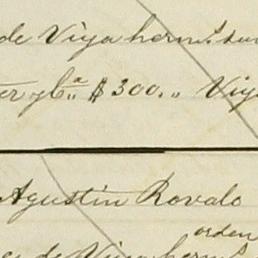 de Viya herms.
$300.,, Viy
Agustin Rovalo
orden
de Viya herms.